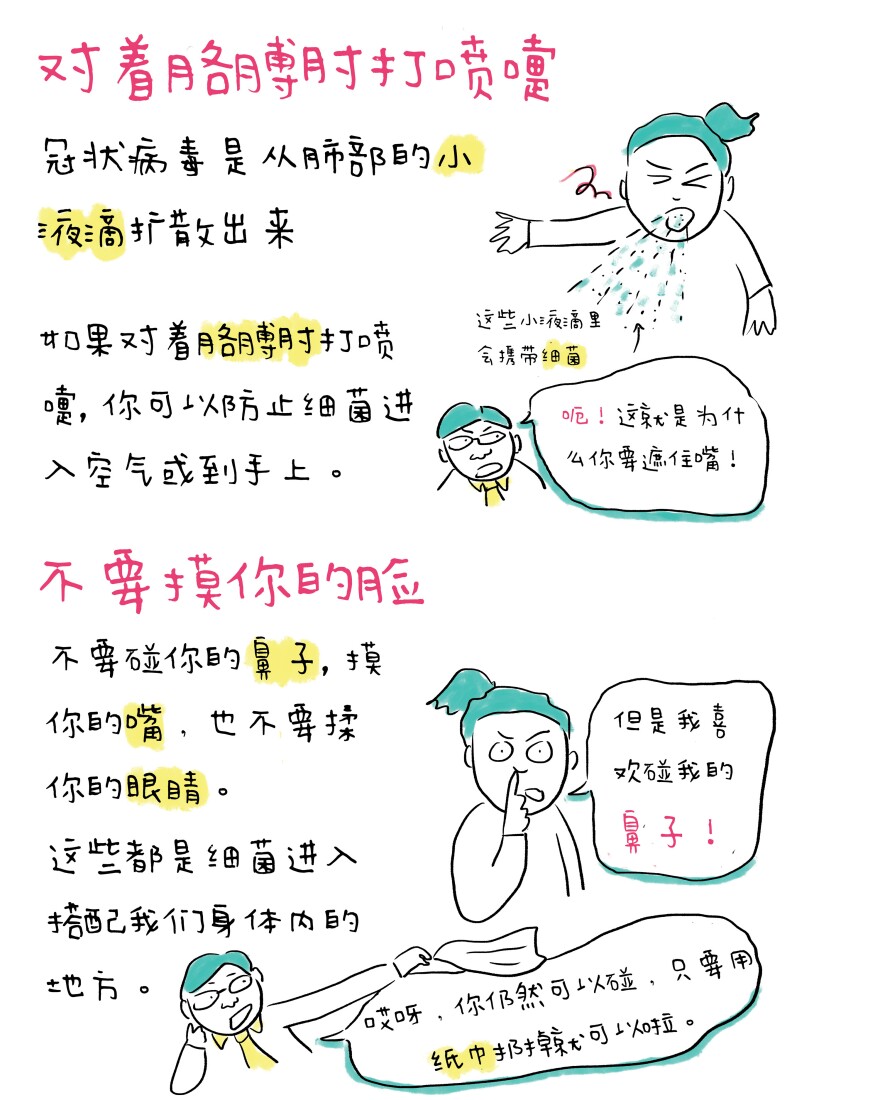 对着胳膊肘打喷嚏
冠状病毒是从肺部的小
液滴扩散出来
这些小液滴里
会携带细菌
如果对着胳膊肘打喷
嚏，你可以防止细菌进
入空气或到手上。
呃！这就是为什
么你要遮住嘴！
不要摸你的脸
不要碰你的鼻子，摸
你的嘴，也不要揉
你的眼睛。
这些都是细菌进入
搭配我们身体内的
地方。
但是我喜
欢碰我的
鼻子！
哎呀，你仍然可以碰，只要用
纸巾扔掉就可以啦。